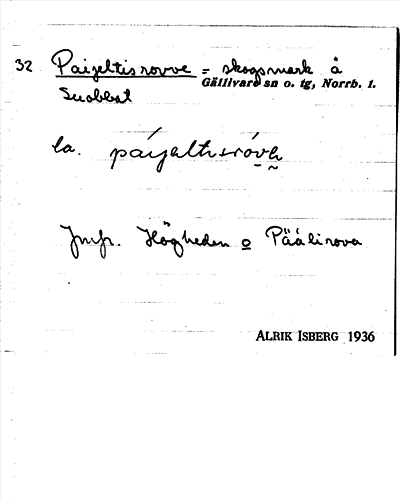 32 Paijeltisrovve = skogsmark å
Gällivare sn o. tg, Norrb. l.
Suobbat
la. páijaltisróvₑ
Jmfr. Högheden o Päälirova
ALRIK ISBERG 1936